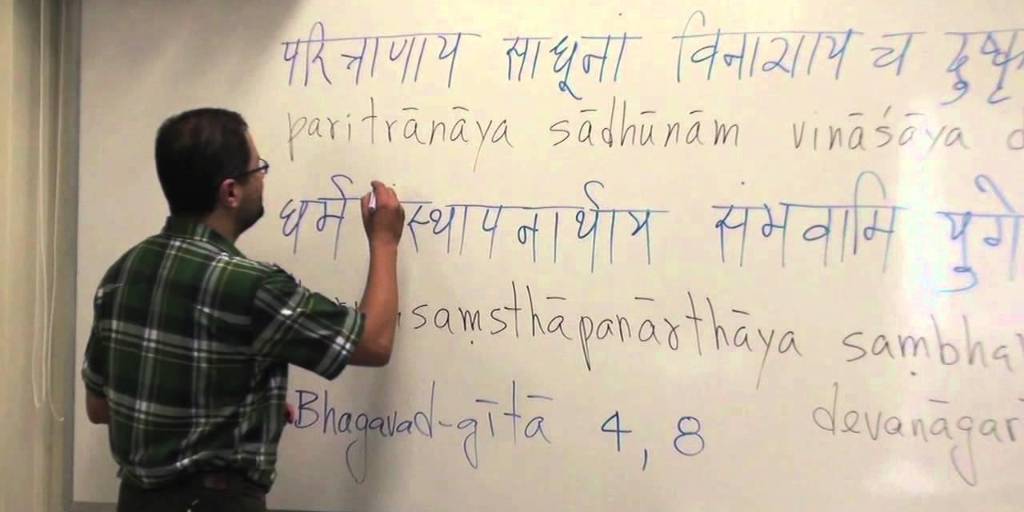 परित्राणाय साधूनां विनाशाय च दुष्कृ
paritrānāya sādhūnām vināśāya
धर्म स्थापनार्थाय संभवामि युगे
saṃsthāpanārthāya saṃbha
Bhagavad-gītā 4, 8 devanāgar